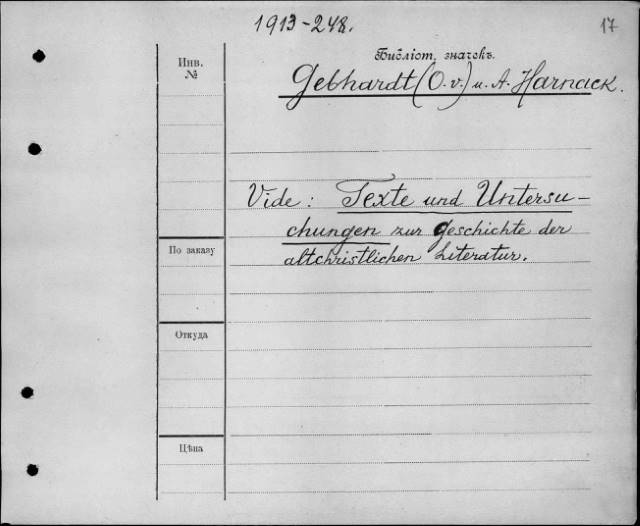 1913-248.
17
Инв.
№
Библіот. значекъ.
Gebhardt (O. v.) u. A. Harnack.
Vide: Texte und Untersu-
chungen zur Geschichte der
altchristlichen Literatur.
По заказу
Откуда
Цѣна